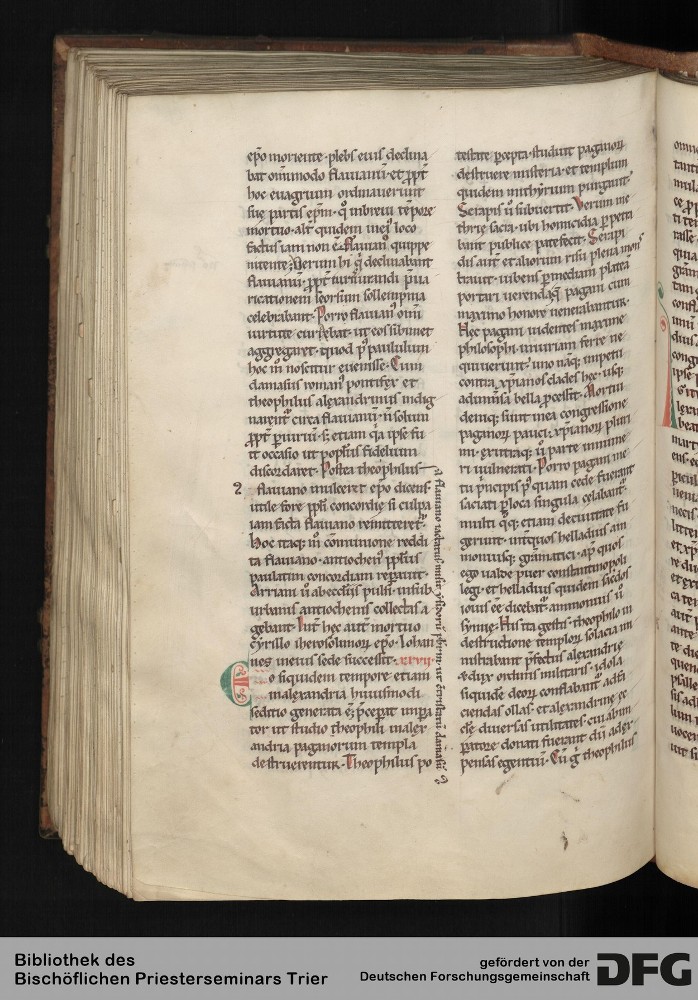 ep̄o moriente · plebs eius declina
bat om̄imodo flauianū · et ꝓpt̄
hoc euagrium ordinauerunt
sue partis ep̄m · q̇ inbreui tēpore
mortuo · alt̄ quidem in ei⁹ loco
factus iam non ē · flauian⁹ quippe
nitente; Verum hi q̇ declinabant
flauianū · ꝓpt̄ iurāmentū
ricationem seorsum sollempnia
celebrabant · Porro flauian⁹ om̄i
uirtute currebat · ut eos sibimet
aggregaret · quod p⁹ paululum
hoc m̊ noscitur euenisse · Cum
damasus roman⁹ pontifex et
theophilus alexandrinus indig
narent᷑ circa flauianū · n̄ solum
ꝓpt̄ periuriū · s; etiam q̇a ipse fu
it occasio ut popłus fidelium
discordaret · Postea theophilus
flauiano misceret᷑ ep̄o dicens ·
utile fore ppłi concordie si culpa
iam facta flauiano remitteret᷑ ·
Hoc itaq; m̊ communione reddi
ta flauiano · antiochen⁹ ppłus
paulatim concordiam reparauit ·
Arriani u̇ ab ecclesiis pulsi · insub
urbanis antiochenis collectas a
gebant · Int̄ hec aut̄ mortuo
cyrillo iherosolimorū ep̄o · Iohan
nes in eius sede successit · xxvii ·
Eo siquidem tempore etiam
in alexandria huiusmodi
seditio generata ē; p̄ceperat impera
tor ut studio theophili in alex
andria paganorum templa
destruerentur · Theophilus po
2
flauiano
damasū
testate percepta · studuit paganorū
destruere misteria · et templum
quidem mithyrum purgauit ·
Serapis u̇ subuertit · Verum me
thrie sacra · ubi homicidia perpetra
bant publice patefecit · Serapi
dis aut̄ et aliorum risu plena mons
trauit · iubens p̱ mediam plateā
portari uerendaq; pagani cum
maximo honore uenerabantur ·
Hec pagani uidentes maxime
philosophi · iniuriam ferre ne
quiuerunt · uno nāq; impetu
contra xp̄ianos clades hec usq;
ad inm̄sa bella p̱cessit · Mortui
deniq; sunt in ea congressione
paganorū pauci · xp̄ianorū pluri
mi · ex utraq; u̇ parte innume
ri uulnerati · Porro pagani me
tu p̄ncipis p⁹quam cede fuerant
saciati p̱ loca singula celabant᷑ ·
multi q̇q; etiam de ciuitate fu
gerunt · int̄ quos helladius am
moniusq; gram̄atici · ap̄ quos
ego ualde puer constantinopoli
legi · et helladius quidem sacˀdos
iouis ēe dicebat᷑ · ammonius u̇
symie · His ita gestis · theophilo in
destructione templorū solacia mi
nistrabant p̄fectus alexandrie
&dux ordinis militaris · idola
siquidē deorū conflabant᷑ ad fa
ciendas ollas · et alexandrine ec
cłe diuersas utilitates · cui ab im
peratore donati fuerant dii ad ex
pensas egentium · Cū ġ theophilus
Bibliothek des
Bischöflichen Priesterseminars Trier
gefördert von der
Deutschen Forschungsgemeinschaft
DFG